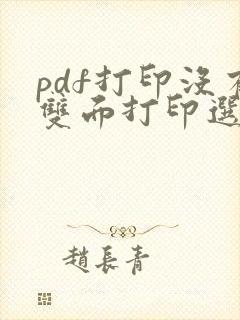 pdf打印没有
雙面打印選
趙長青